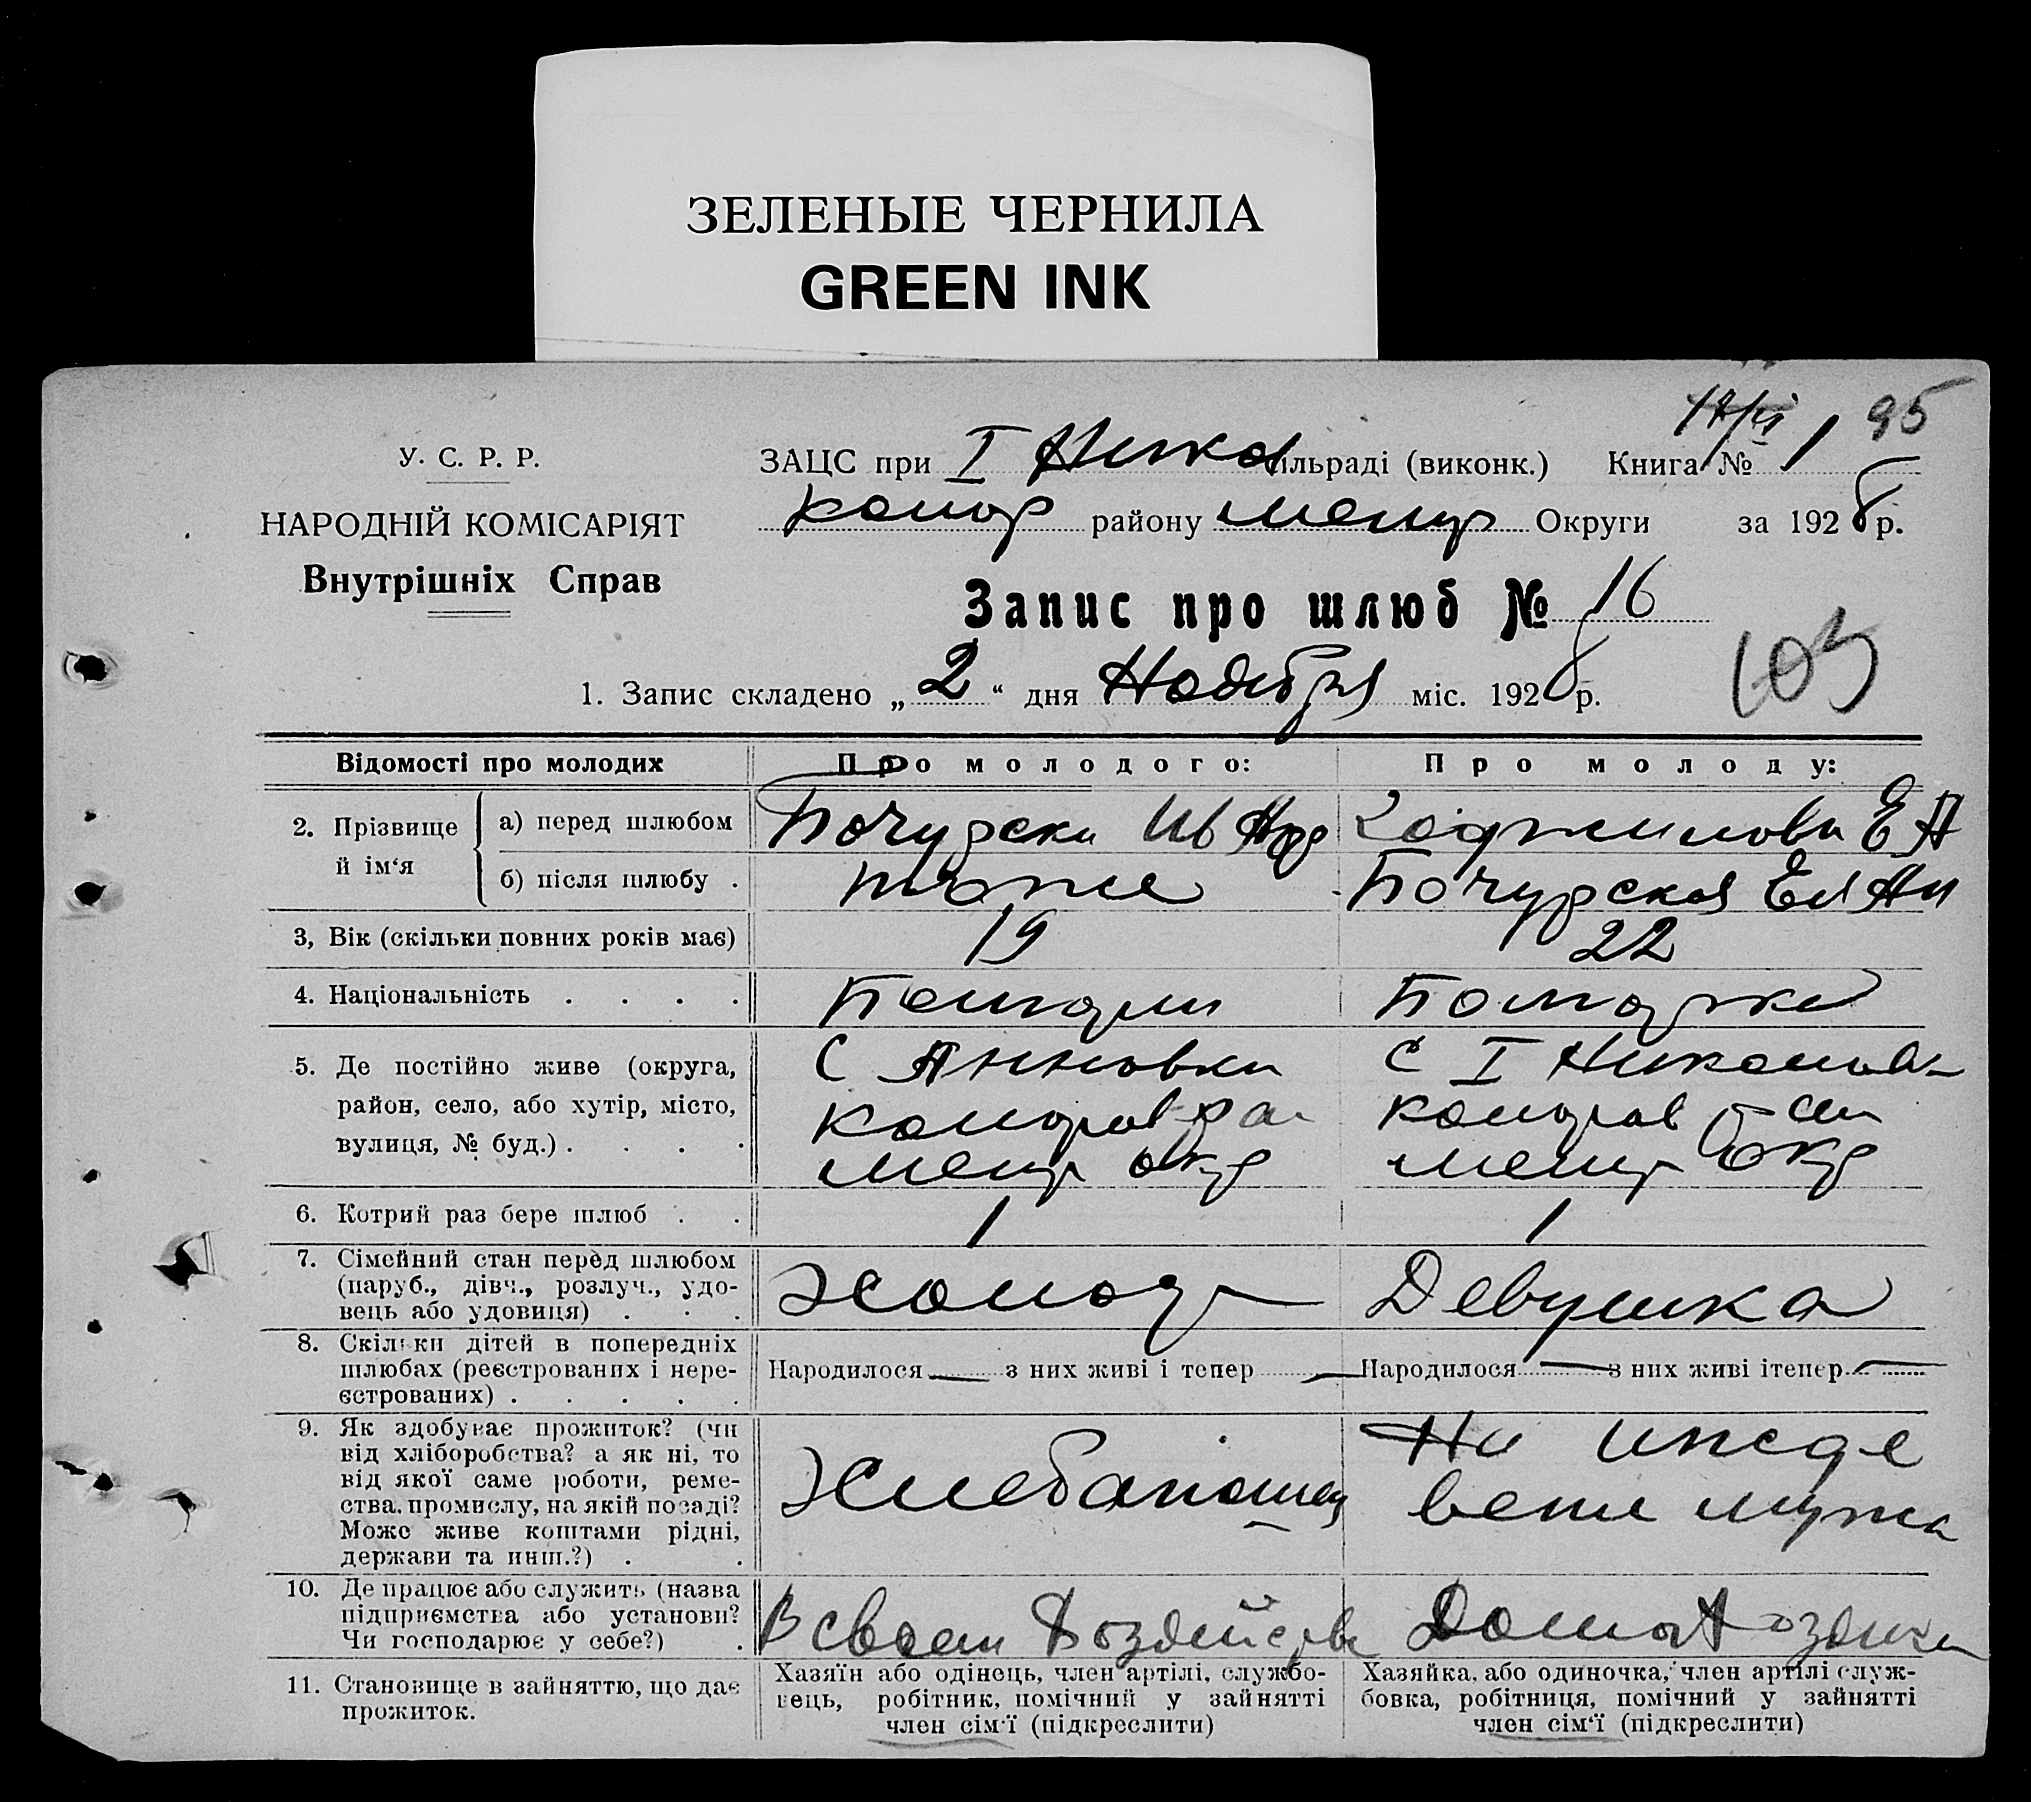 ЗЕЛЕНЫЕ ЧЕРНИЛА
GREEN INK
95
У. С. Р. Р.
НАРОДНІЙ КОМІСАРІЯТ
Внутрішніх Справ
ЗАЦС при I Нико сільраді (виконк.) Книга № 1
району Округи за 1928 р.
Запис про шлюб № 16
103
1. Запис складено „2“ дня Ноября міс. 1928 р.
Відомості про молодих
Про молодого:
Про молоду:
2. Прізвище й ім'я
а) перед шлюбом
Почурски Ив Анд
Е А
б) після шлюбу .
тоже
Почурская Ел Ан
3, Вік (скільки повних років має)
19
22
4. Національність . . . .
5. Де постійно живе (округа,
район, село, або хутір, місто,
вулиця, № буд.) . . . .
С Анновки
С I Николаев
6. Котрий раз бере шлюб . .
1
1
7. Сімейний стан перед шлюбом
(паруб., дівч., розлуч., удо-
вець або удовиця) . . .
Холост
Девушка
8. Скільки дітей в попередніх
шлюбах (реєстрованих і нере-
єстрованих) . . . . .
Народилося — з них живі і тепер —
Народилося — з них живі ітепер —
9. Як здобуває прожиток? (чи
від хліборобства? а як ні, то
від якої саме роботи, реме-
ства, промислу, на якій посаді?
Може живе коштами рідні,
держави та инш.?) . .
Хлебапашец
На иждевени мужа
10. Де працює або служить (назва
підприємства або установи?
Чи господарює у себе?) .
В своем Хозяйстве
11. Становище в зайняттю, що дає
прожиток.
Хазяїн або одінець, член артілі, службо-
вець, робітник, помічний у зайнятті
член сім'ї (підкреслити)
Хазяйка, або одиночка, член артілі служ-
бовка, робітниця, помічний у зайнятті
член сім'ї (підкреслити)